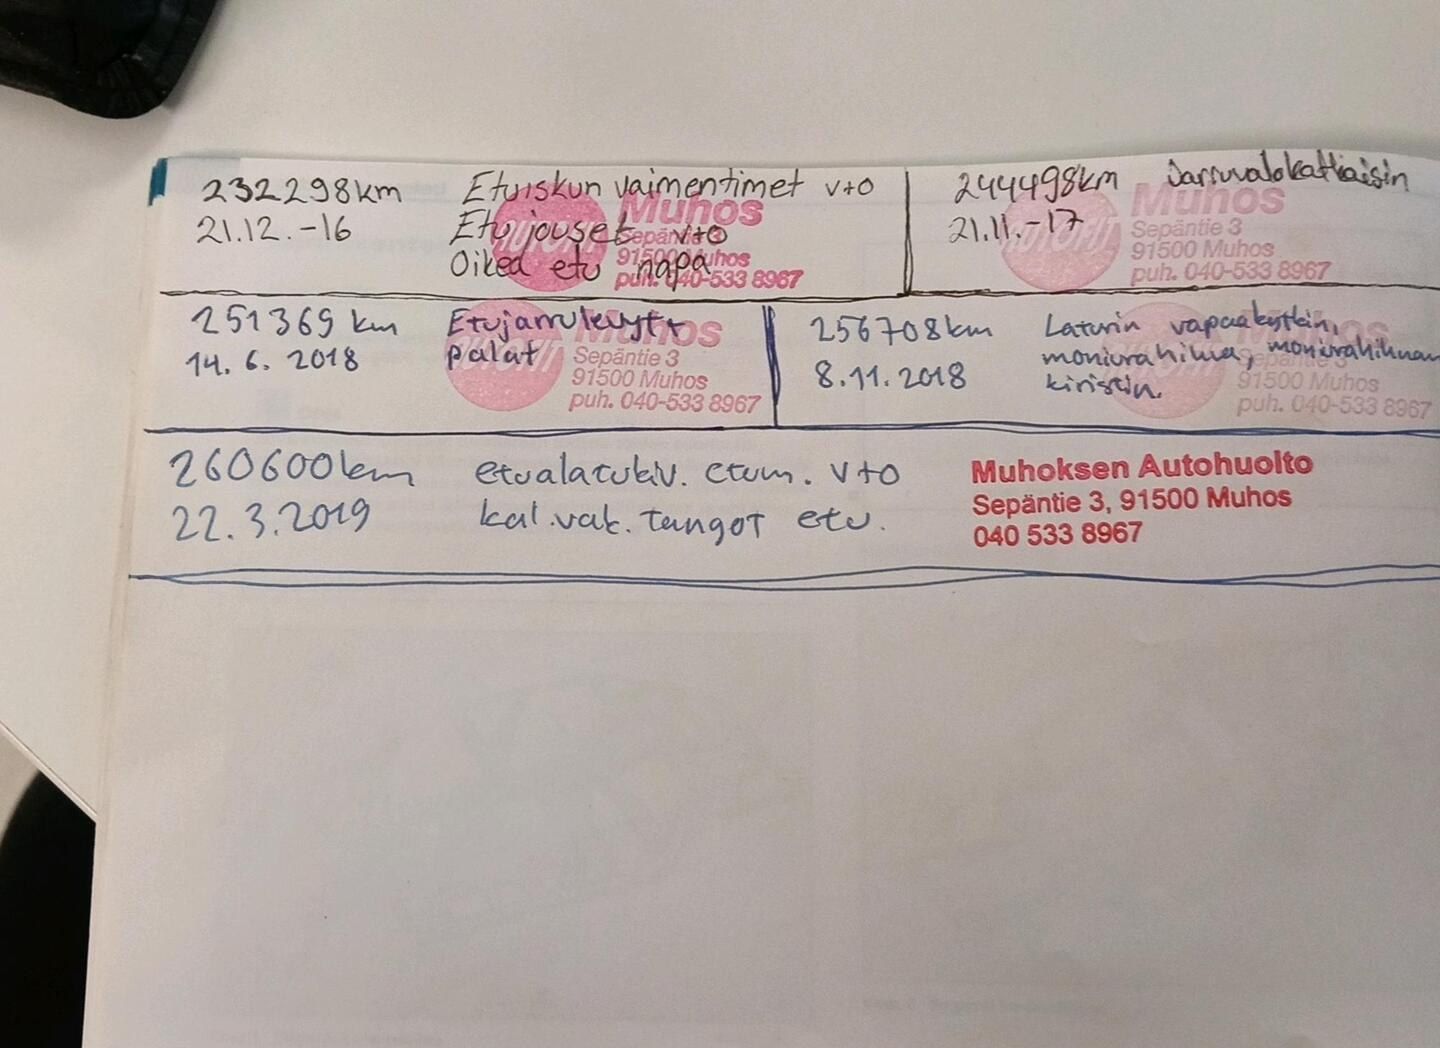 232298km Etuiskun vaimentimet v+o
21.12.-16 Etu jouset v+o
Oikea etu napa
Muhos
Sepäntie 3
91500 Muhos
puh. 040-533 8967
244498km Jarruvalokatkaisin
21.11.-17
Muhos
Sepäntie 3
91500 Muhos
puh. 040-533 8967
251369 km Etujarrulevyt+
14.6.2018 palat
Muhos
Sepäntie 3
91500 Muhos
puh. 040-533 8967
256708km Laturin vapaakytkin,
8.11.2018 moniurahihna, moniurahihnan
kiristin.
Sepäntie 3
91500 Muhos
puh. 040-533 8967
260600km etualatukiv. etum. v+o
22.3.2019 kal.vak. tangot etu.
Muhoksen Autohuolto
Sepäntie 3, 91500 Muhos
040 533 8967